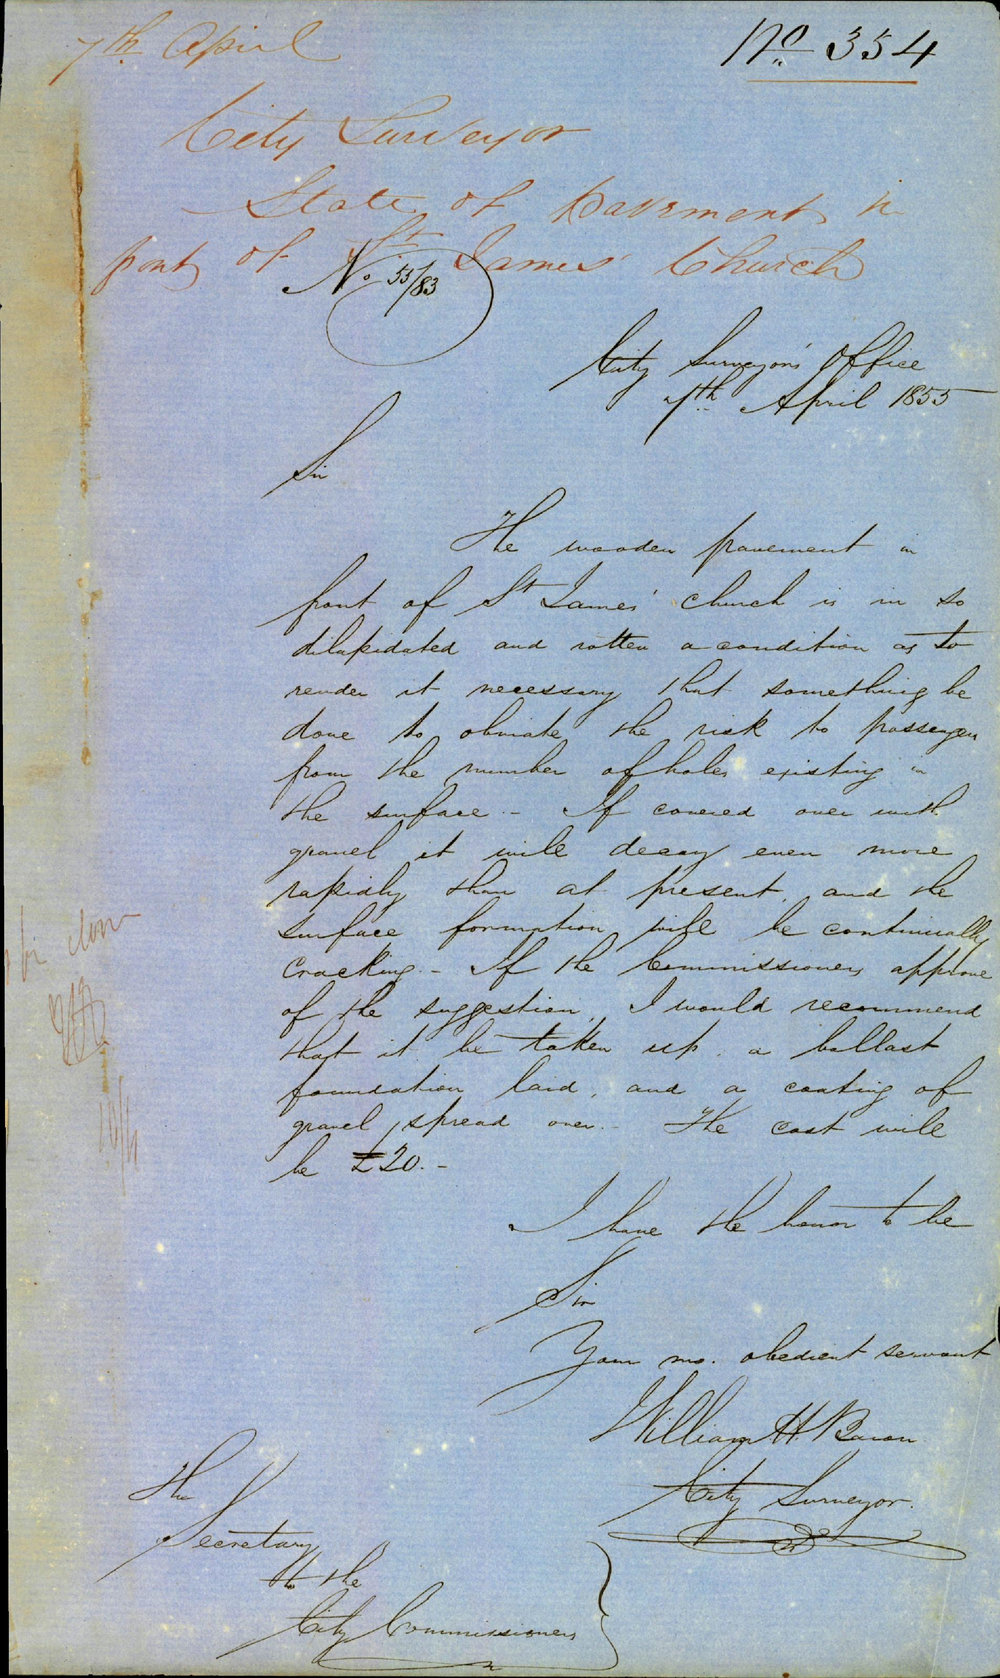 7th April
No 354
City Surveyor
State of Pavement in
front of St James' Church
No. 55/83
City Surveyor's Office
7th April 1855
Sir
The wooden pavement in
front of St James' church is in so
dilapidated and rotten a condition as to
render it necessary that something be
done to obviate the risk to passengers
from the number of holes existing in
the surface - If covered over with
gravel it will decay even more
rapidly than at present, and the
surface formation will be continually
cracking. - If the Commissioners approve
of the suggestion, I would recommend
that it be taken up, a ballast
foundation laid, and a coating of
gravel spread over. - The cost will
be £20. -
I have the honor to be
Sir
Your mo. obedient servant
William H. Baron
City Surveyor.
The
Secretary
to the
City Commissioners
be done
10/4